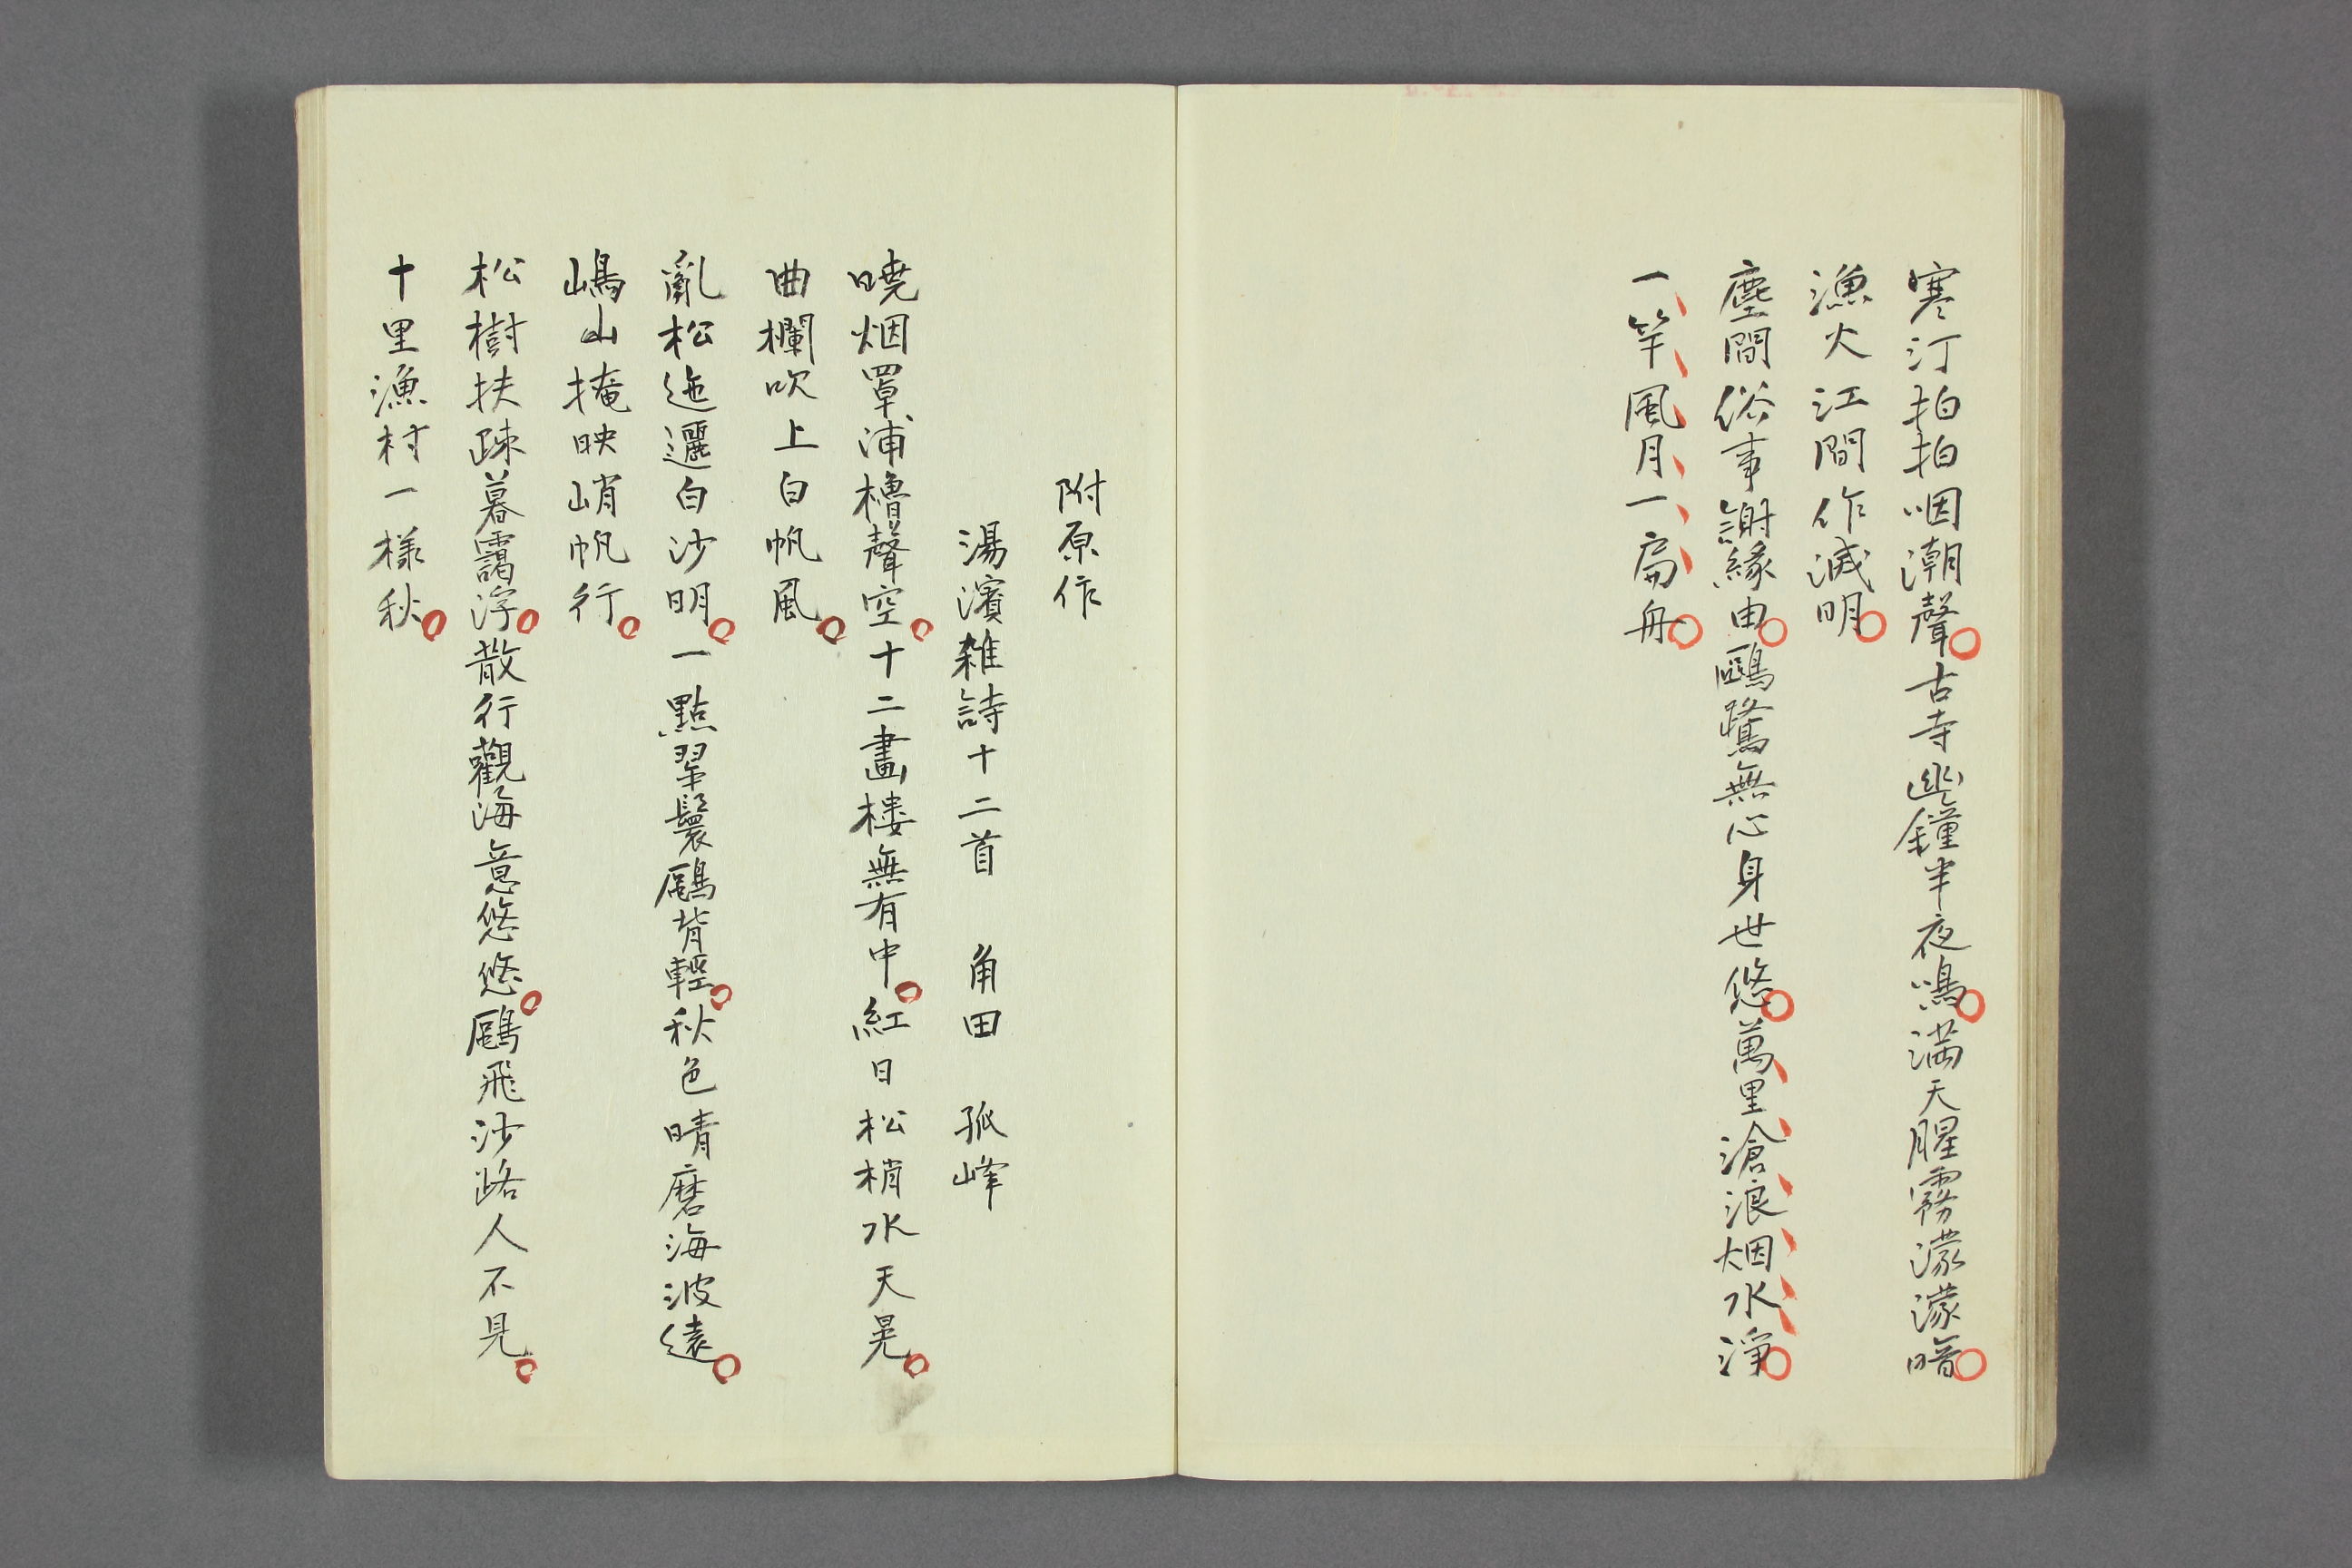 寒汀拍拍咽潮聲古寺幽鐘半夜鳴滿天腥霧濛濛暗
漁火江間作滅明
塵間俗事謝緣由鷗鷺無心身世悠萬里滄浪烟水淨
一竿風月一扁舟
附原作
湯濱雜詩十二首 角田 孤峰
曉烟罩浦櫓聲空十二畫樓無有中紅日松梢水天晃
曲欄吹上白帆風
亂松迤邐白沙明一點翠鬟鷗背輕秋色晴磨海波遠
嶋山掩映峭帆行
松樹扶疎暮靄浮散行觀海意悠悠鷗飛沙路人不見
十里漁村一樣秋